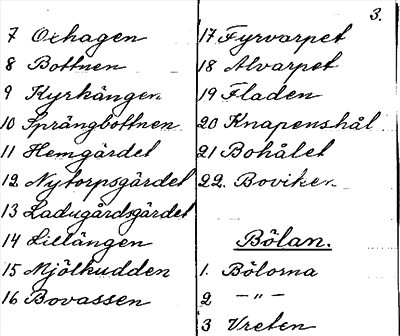 3.
7 Oxhagen
8 Bottnen
9 Kyrkängen
10 Sprängbottnen
11 Hemgärdet
12 Nytorpsgärdet
13 Ladugårdsgärdet
14 Lillängen
15 Mjölkudden
16 Bovassen
17 Fyrvarpet
18 Alvarpet
19 Fladen
20 Knapenshål
21 Bohålet
22. Boviken
Bölan.
1. Bölorna
2 —"—
3 Vreten